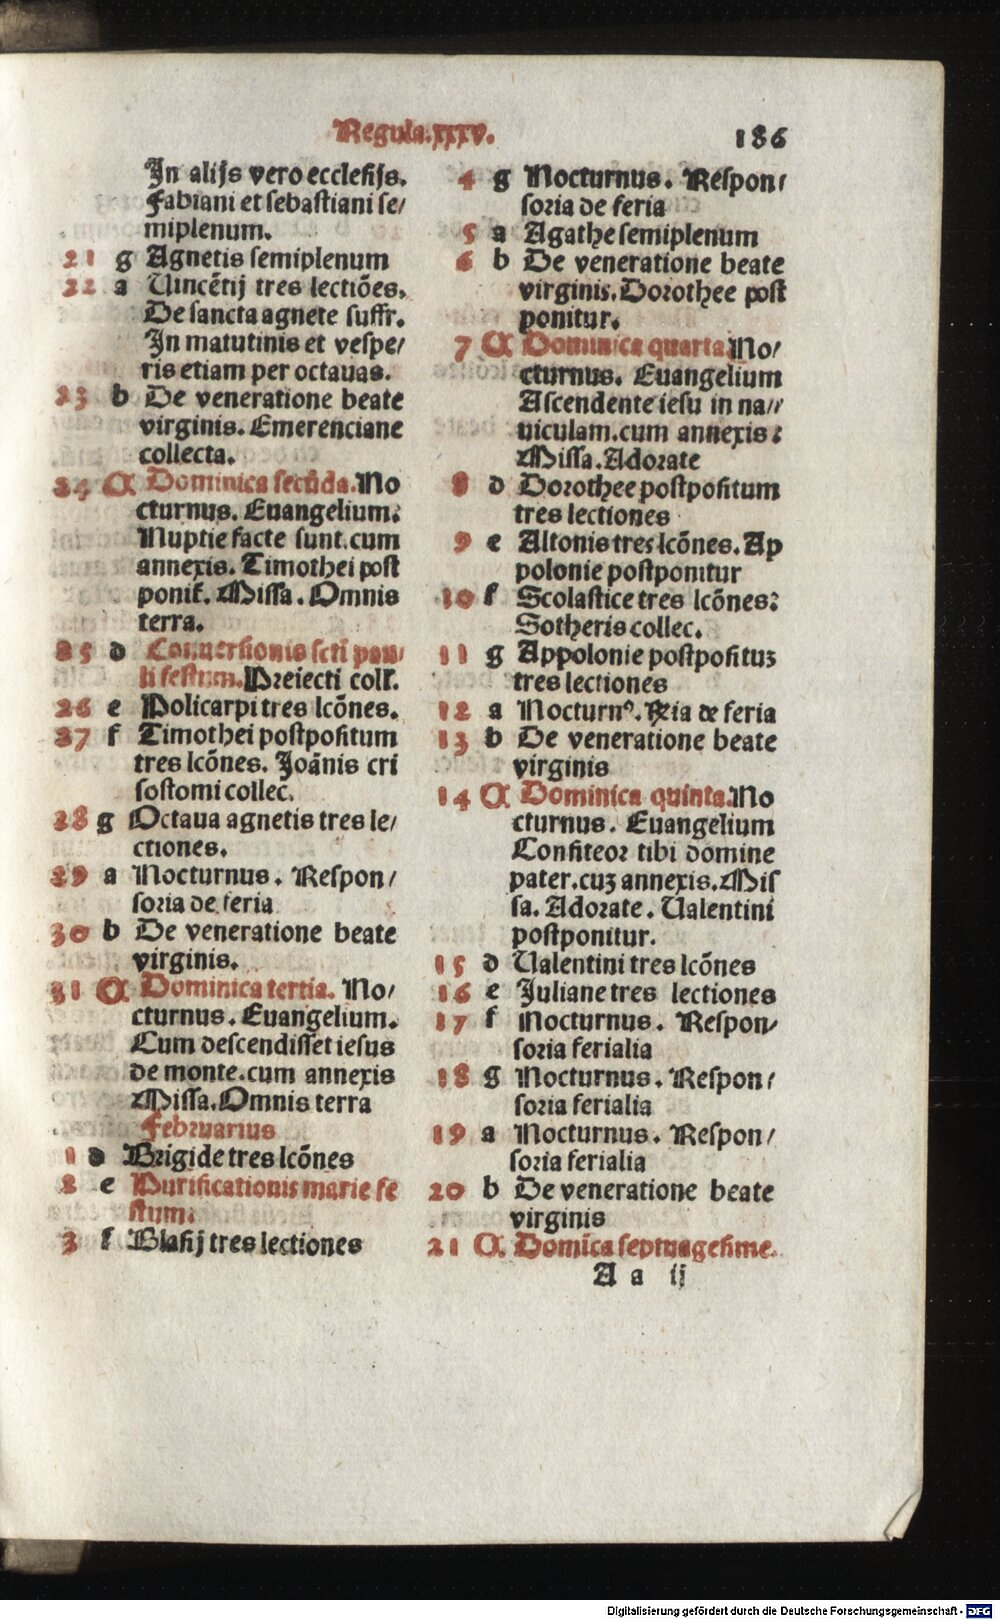 Regula.xxxv.
186
In alijs vero ecclesijs.
Fabiani et sebastiani se/
miplenum.
21 g Agnetis semiplenum
22 a Uincētij tres lectiōes.
De sancta agnete suffr.
In matutinis et vespe/
ris etiam per octauas.
23 b De veneratione beate
virginis. Emerenciane
collecta.
24 A Dominica secūda. No
cturnus. Euangelium:
Nuptie facte sunt.cum
annexis. Timothei post
ponit̄. Missa. Omnis
terra.
25 d Conuersionis scti pau/
li festum. Preiecti coll̄.
26 e Policarpi tres lcōnes.
27 f Timothei postpositum
tres lcōnes. Joānis cri
sostomi collec.
28 g Octaua agnetis tres le/
ctiones.
29 a Nocturnus. Respon/
soria de feria
30 b De veneratione beate
virginis.
31 A Dominica tertia. No/
cturnus. Euangelium.
Cum descendisset iesus
de monte.cum annexis
Missa. Omnis terra
Februarius
1 d Brigide tres lcōnes
2 e Purificationis marie fe
stum:
3 f Blasij tres lectiones
4 g Nocturnus. Respon/
soria de feria
5 a Agathe semiplenum
6 b De veneratione beate
virginis. Dorothee post
ponitur.
7 A Dominica quarta. No/
cturnus. Euangelium
Ascendente iesu in na//
uiculam.cum annexis:
Missa. Adorate
8 d Dorothee postpositum
tres lectiones
9 e Altonis tres lcōnes. Ap
polonie postponitur
10 f Scolastice tres lcōnes:
Sotheris collec.
11 g Appolonie postposituꝫ
tres lectiones
12 a Nocturnꝰ. Rx̄ia de feria
13 b De veneratione beate
virginis
14 A Dominica quinta. No
cturnus. Euangelium
Confiteor tibi domine
pater.cuꝫ annexis. Mis
sa. Adorate. Ualentini
postponitur.
15 d Ualentini tres lcōnes
16 e Juliane tres lectiones
17 f Nocturnus. Respon/
soria ferialia
18 g Nocturnus. Respon/
soria ferialia
19 a Nocturnus. Respon/
soria ferialia
20 b De veneratione beate
virginis
21 A Domīca septuagesime.
A a ij
Digitalisierung gefördert durch die Deutsche Forschungsgemeinschaft - DFG